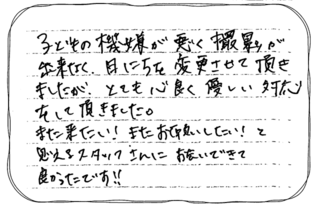 子どもの機嫌が悪く撮影が
出来なく、日にちを変更させて頂き
ましたが、とても心良く優しい対応
をして頂きました。
また来たい！またお願いしたい！と
思えるスタッフさんにお会いできて
良かったです!!